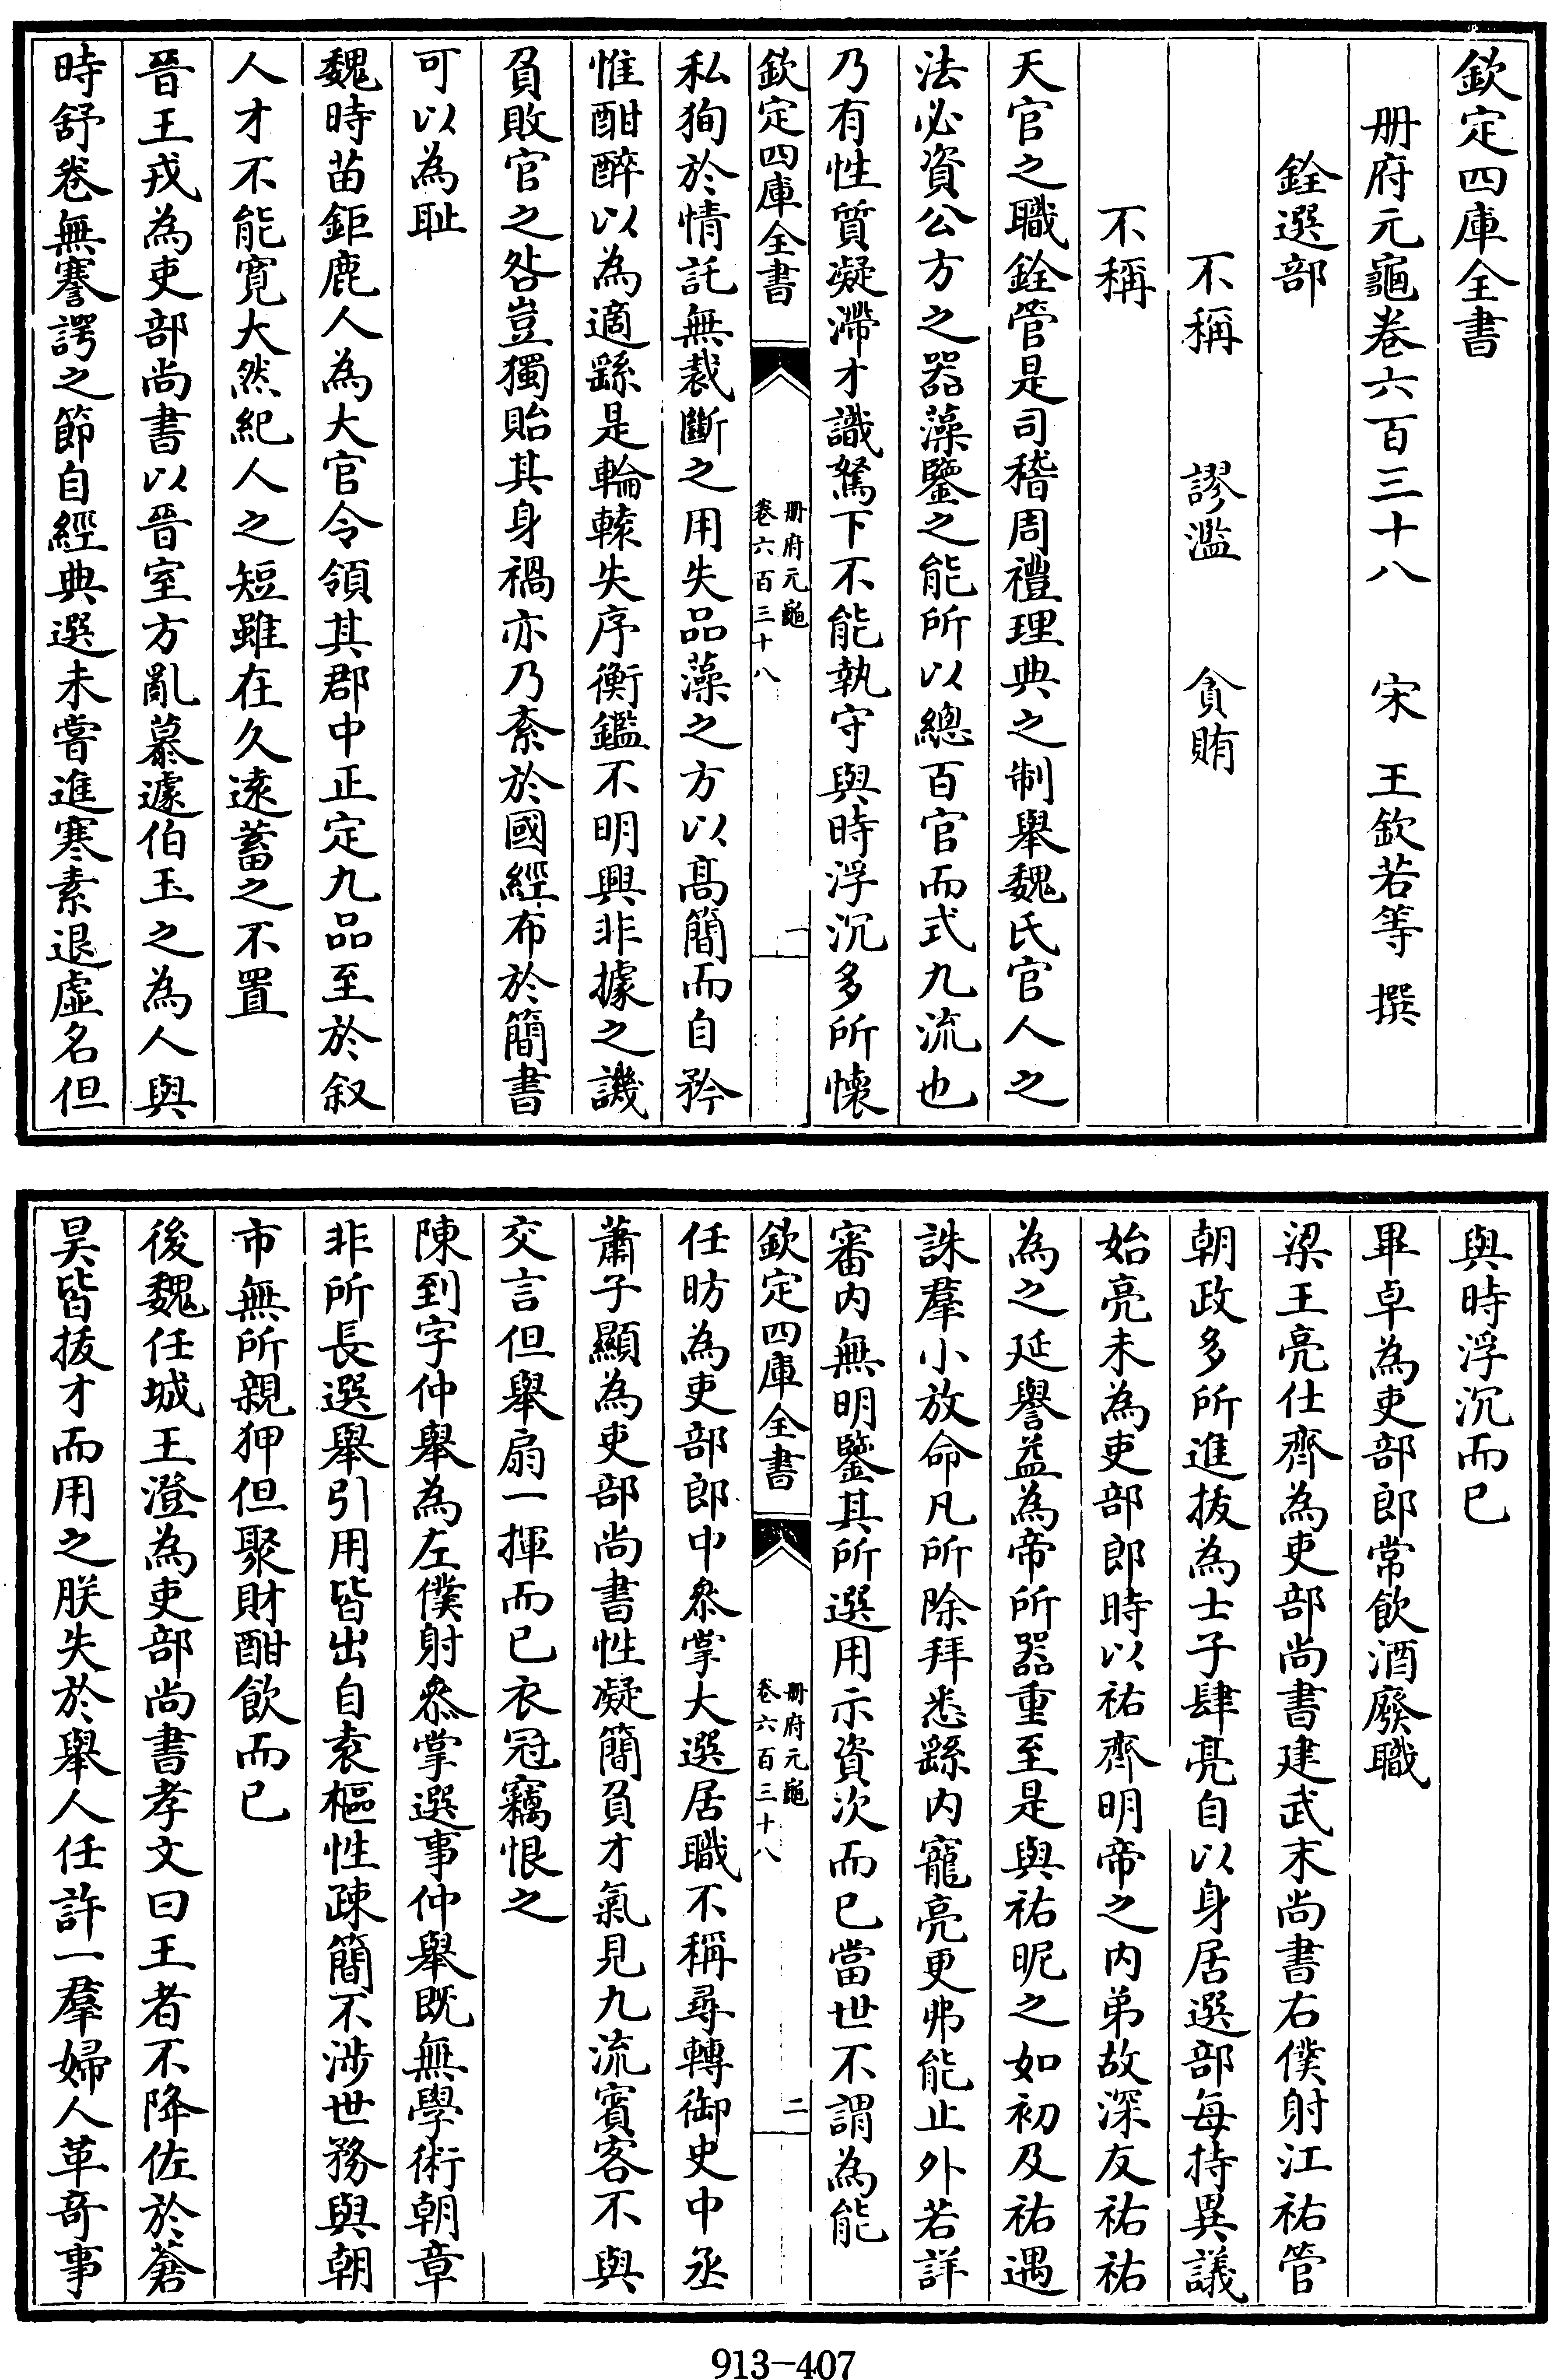 欽定四庫全書
册府元龜卷六百三十八　宋　王欽若等　撰
銓選部
不稱　謬濫　貪賄
不稱
天官之職銓管是司稽周禮理典之制舉魏氏官人之
法必資公方之器藻鑒之能所以總百官而式九流也
乃有性質凝滯才識駑下不能執守與時浮沉多所懷
欽定四庫全書
册府元龜
卷六百三十八
一
私狥於情託無裁斷之用失品藻之方以髙簡而自矜
惟酣醉以為適繇是輪轅失序衡鑑不明興非據之譏
負敗官之咎豈獨貽其身禍亦乃紊於國經布於簡書
可以為耻
魏時苗鉅鹿人為大官令領其郡中正定九品至於叙
人才不能寛大然紀人之短雖在久逺蓄之不置
晉王戎為吏部尚書以晉室方亂慕蘧伯玉之為人與
時舒卷無謇諤之節自經典選未嘗進寒素退虛名但
與時浮沉而已
畢卓為吏部郎常飲酒廢職
梁王亮仕齊為吏部尚書建武末尚書右僕射江祐管
朝政多所進拔為士子肆亮自以身居選部每持異議
始亮未為吏部郎時以祐齊明帝之内弟故深友祐祐
為之延譽益為帝所器重至是與祐昵之如初及祐遇
誅羣小放命凡所除拜悉繇内寵亮更弗能止外若詳
審内無明鑒其所選用示資次而已當世不謂為能
欽定四庫全書
册府元龜
卷六百三十八
二
任昉為吏部郎中叅掌大選居職不稱尋轉御史中丞
蕭子顯為吏部尚書性凝簡負才氣見九流賓客不與
交言但舉扇一揮而已衣冠竊恨之
陳到字仲舉為左僕射叅掌選事仲舉既無學術朝章
非所長選舉引用皆出自袁樞性疎簡不涉世務與朝
市無所親狎但聚財酣飲而已
後魏任城王澄為吏部尚書孝文曰王者不降佐於蒼
昊皆拔才而用之朕失於舉人任許一羣婦人革竒事
913-407